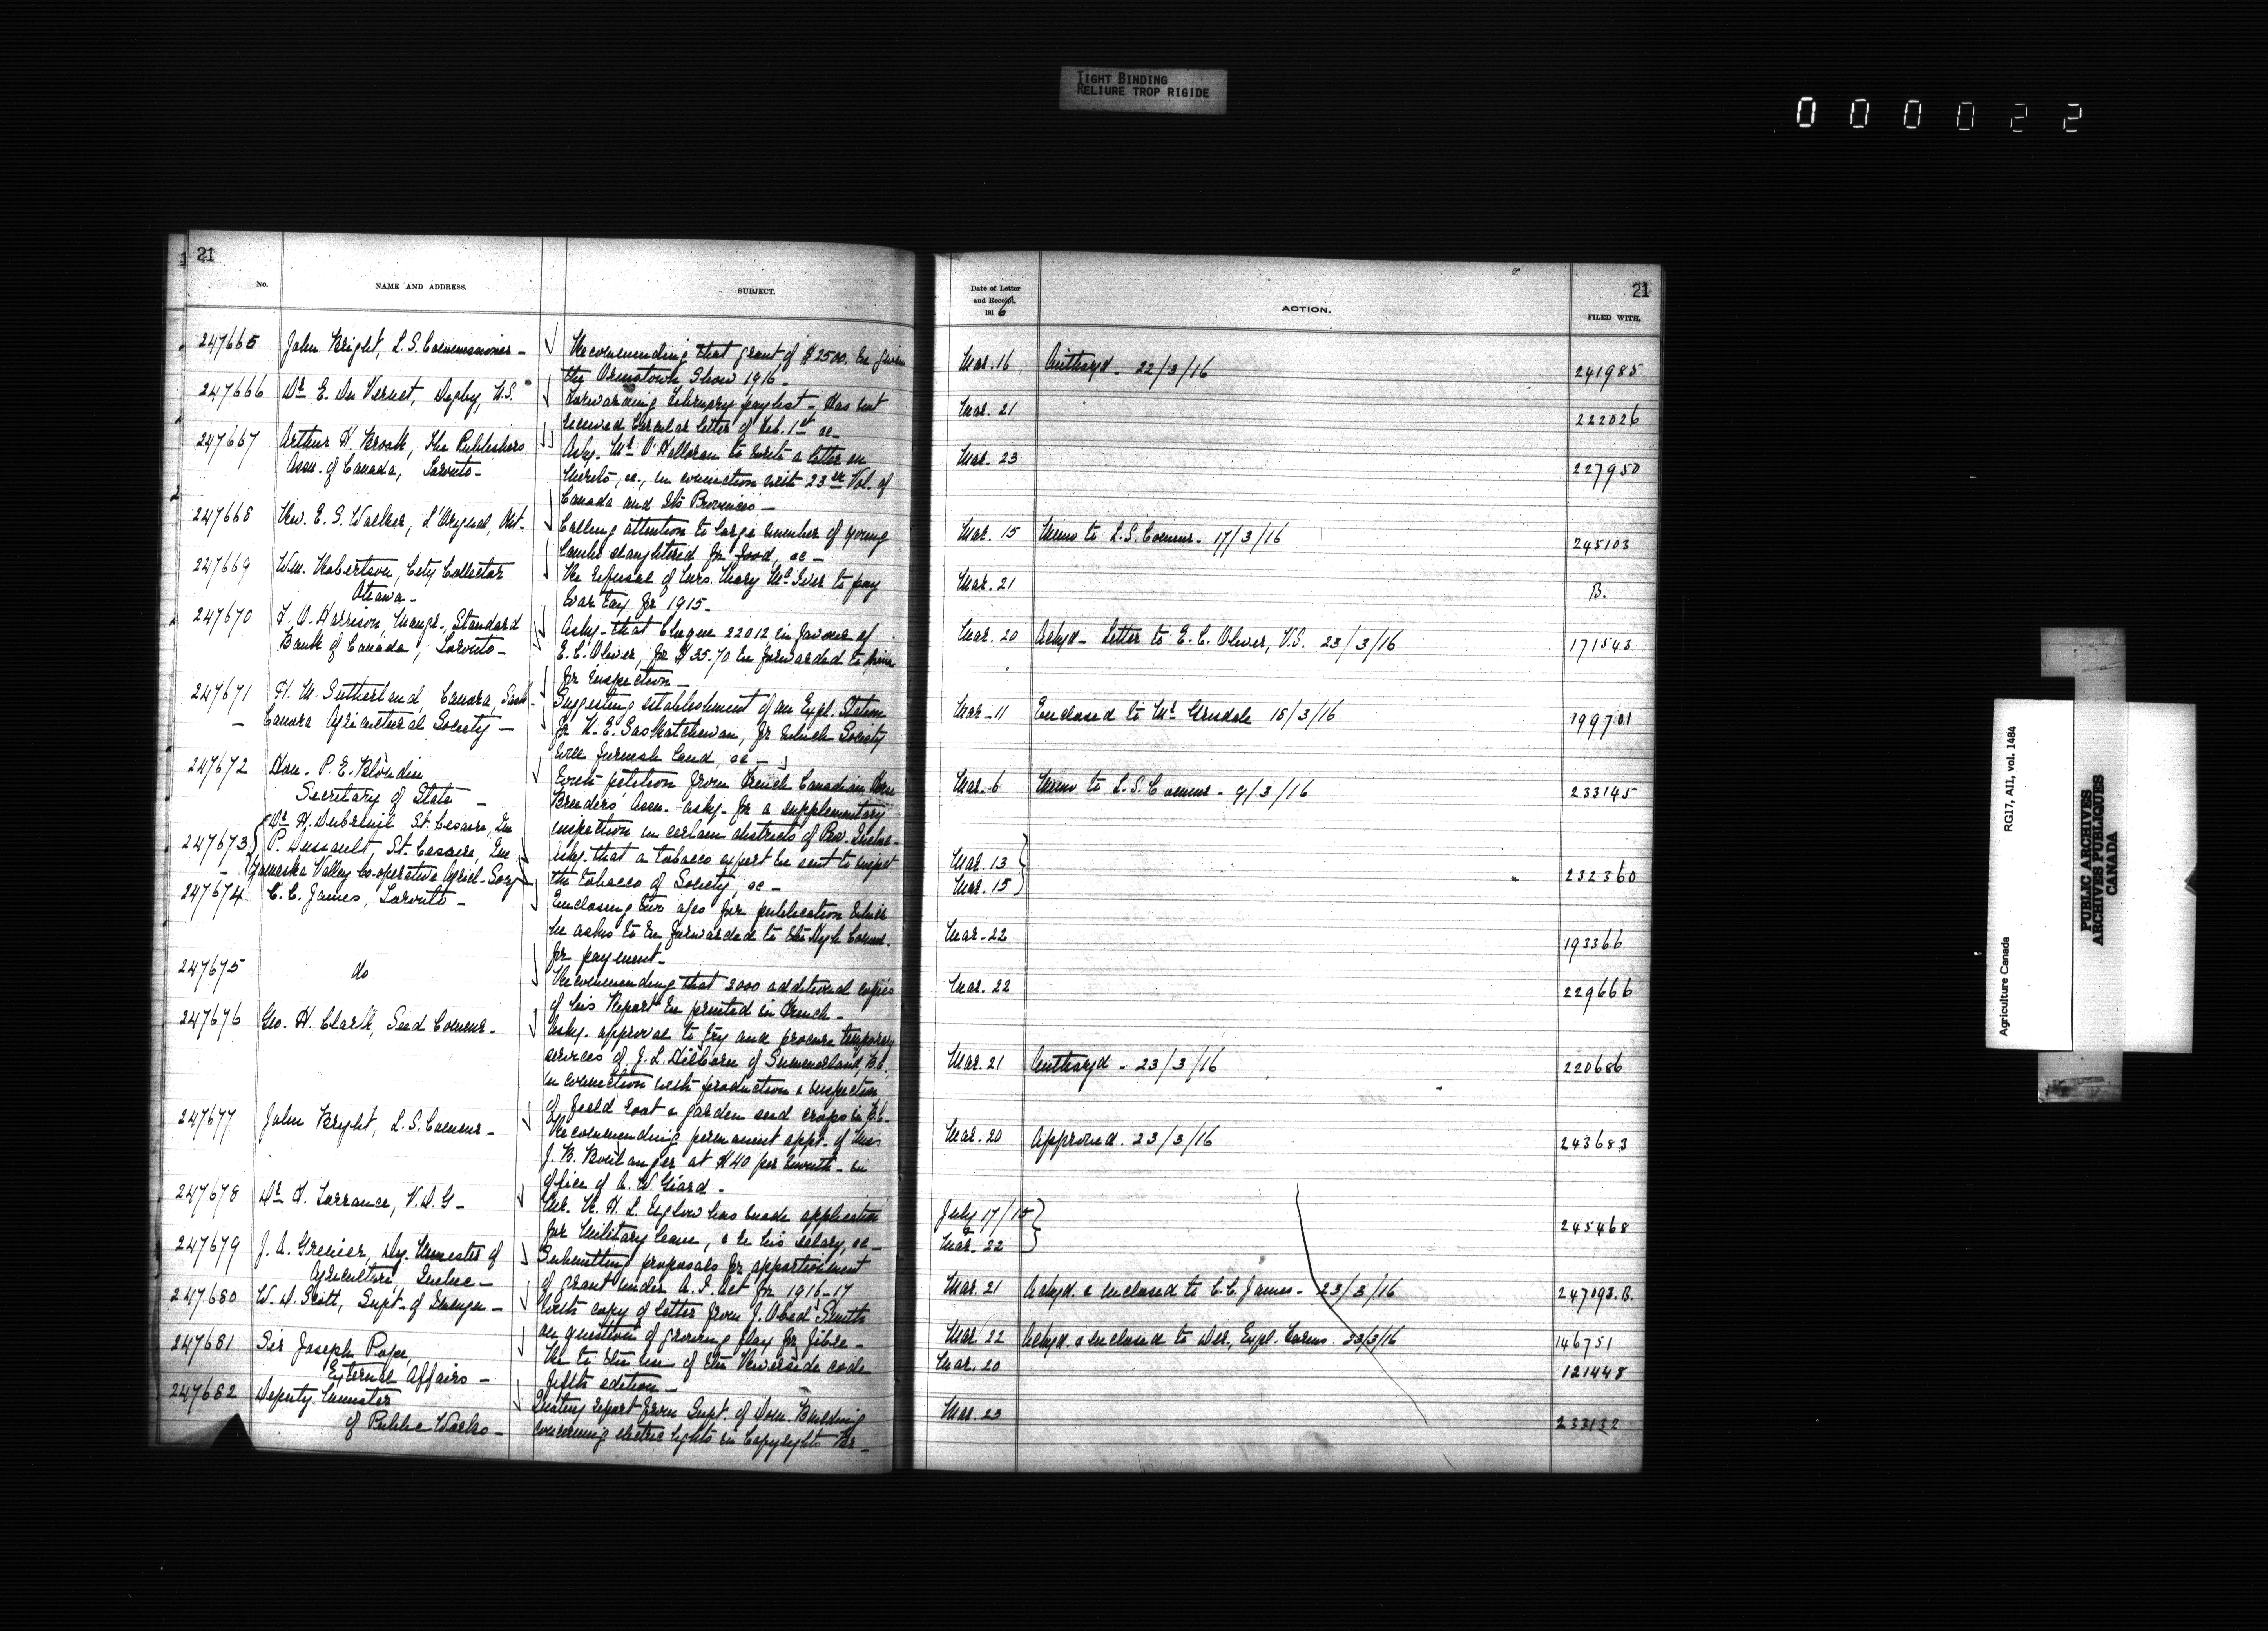 TIGHT BINDING
RELIURE TROP RIGIDE
000022
21
No.
NAME AND ADDRESS.
SUBJECT.
247665 John Bright, L.S. Commissioner - Recommending that grant of $2500. be given
the Ormstown Show 1916 -
247666 Dr. E. Du Vernet, Digby, N.S. Forwarding February paylist - Has not
received Circular letter of Feb. 1st &c -
247667 Arthur H. Brook, The Publishers Askg. Mr. O'Halloran to write a letter on
Assn. of Canada, Toronto - &c., in connection with 23rd Vol. of
Canada and Its Provinces -
247668 Rev. E. S. Walker, L'Orignal, Ont. Calling attention to large number of young
lambs slaughtered for food, &c -
247669 Wm. Robertson, City Collector Re refusal of Mrs. Mary McIver to pay
Ottawa - War Tax for 1915 -
247670 Harrison, Mangr., Standard Askg. that Cheque 22012 in favour of
Bank of Canada, Toronto - E. C. Oliver, for $35.70 be forwarded to him
for inspection -
247671 H. M. Sutherland, Canora, Sask. Suggesting establishment of an Expl. Station
- Canora Agricultural Society - for N.E. Saskatchewan, for which Society
will furnish land, &c -
247672 Hon. P. E. Blondin With petition from French Canadian
Secretary of State - Breeders Assn. askg. for a supplementary
inspection in certain districts of Prov. Quebec -
Dr. H. Dubreuil St. Cesaire, Que
247673 P. Dussault St. Cesaire, Que Askg. that a tobacco expert be sent to inspect
- Yamaska Valley Co-operative Agricl. Socy the tobacco of Society, &c -
247674 C. C. James, Toronto - Enclosing two a/cs for publication which
he asks to be forwarded to the High Comnr.
for payment -
247675 do Recommending that 2000 additional copies
of his Report be printed in French -
247676 Geo. H. Clark, Seed Comnr. - Askg. approval to try and procure temporary
services of J. L. Hilborn of Summerland, B.C.
in connection with production & inspection
of field root & garden seed crops in B.C.
247677 John Bright, L.S. Comnr. - Recommending permanent appt. of Miss
J. B. Boulanger at $40 per month - in
office of A. W. Giard -
247678 Dr. F. Torrance, V.D.G - Mr. R. H. L. has made application
for Military leave, & re his salary, &c -
247679 J. A. Grenier, Dy. Minister of Submitting proposals for apportionment
Agriculture, Quebec - of grant under A. I. Act for 1916-17
247680 W. D. Scott, Supt. of Immgn - With copy of letter from J. Obed Smith
on question of growing flax for fibre -
247681 Sir Joseph Pope Re to the use of the Riverside code
External Affairs - fifth edition -
247682 Deputy Minister Quoting report from Supt. of Dom. Building
of Public Works - concerning electric lights in Copyrights Br -
Date of Letter
and Receipt,
1916
ACTION.
21
FILED WITH.
Mar. 16 Authorzd - 22/3/16 241985
Mar. 21 222026
Mar. 23 227950
Mar. 15 Memo to L.S. Comnr. 17/3/16 245103
Mar. 21 B.
Mar. 20 Ackgd - Letter to E. C. Oliver, V.S. 23/3/16 171543
Mar. 11 Enclosed to Mr. Grisdale 15/3/16 199701
Mar. 6 Memo to L.S. Comnr - 9/3/16 233145
Mar. 13
Mar. 15 232360
Mar. 22 193366
Mar. 22 229666
Mar. 21 Authorzd - 23/3/16 220686
Mar. 20 Approved. 23/3/16 243683
July 17/15
Mar. 22 245468
Mar. 21 Ackgd. & enclosed to C. C. James - 23/3/16 247093.B.
Mar. 22 Ackgd. & enclosed to Dir., Expl. Farms. 23/3/16 146751
Mar. 20 121448
Mar. 23 233132
Agriculture Canada RG17, AII, vol. 1484
PUBLIC ARCHIVES
ARCHIVES PUBLIQUES
CANADA